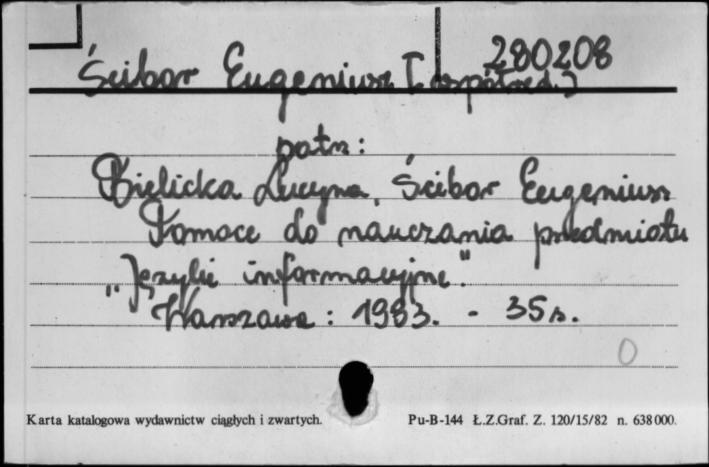 280208
Ścibor Eugeniusz [współred.]
patrz:
Bielicka Lucyna, Ścibor Eugeniusz
Pomoce do nauczania przedmiotu
„Języki informacyjne".
Warszawa: 1983. - 35 s.
0
Karta katalogowa wydawnictw ciągłych i zwartych. Pu-B-144 Ł.Z.Graf. Z. 120/15/82 n. 638000.